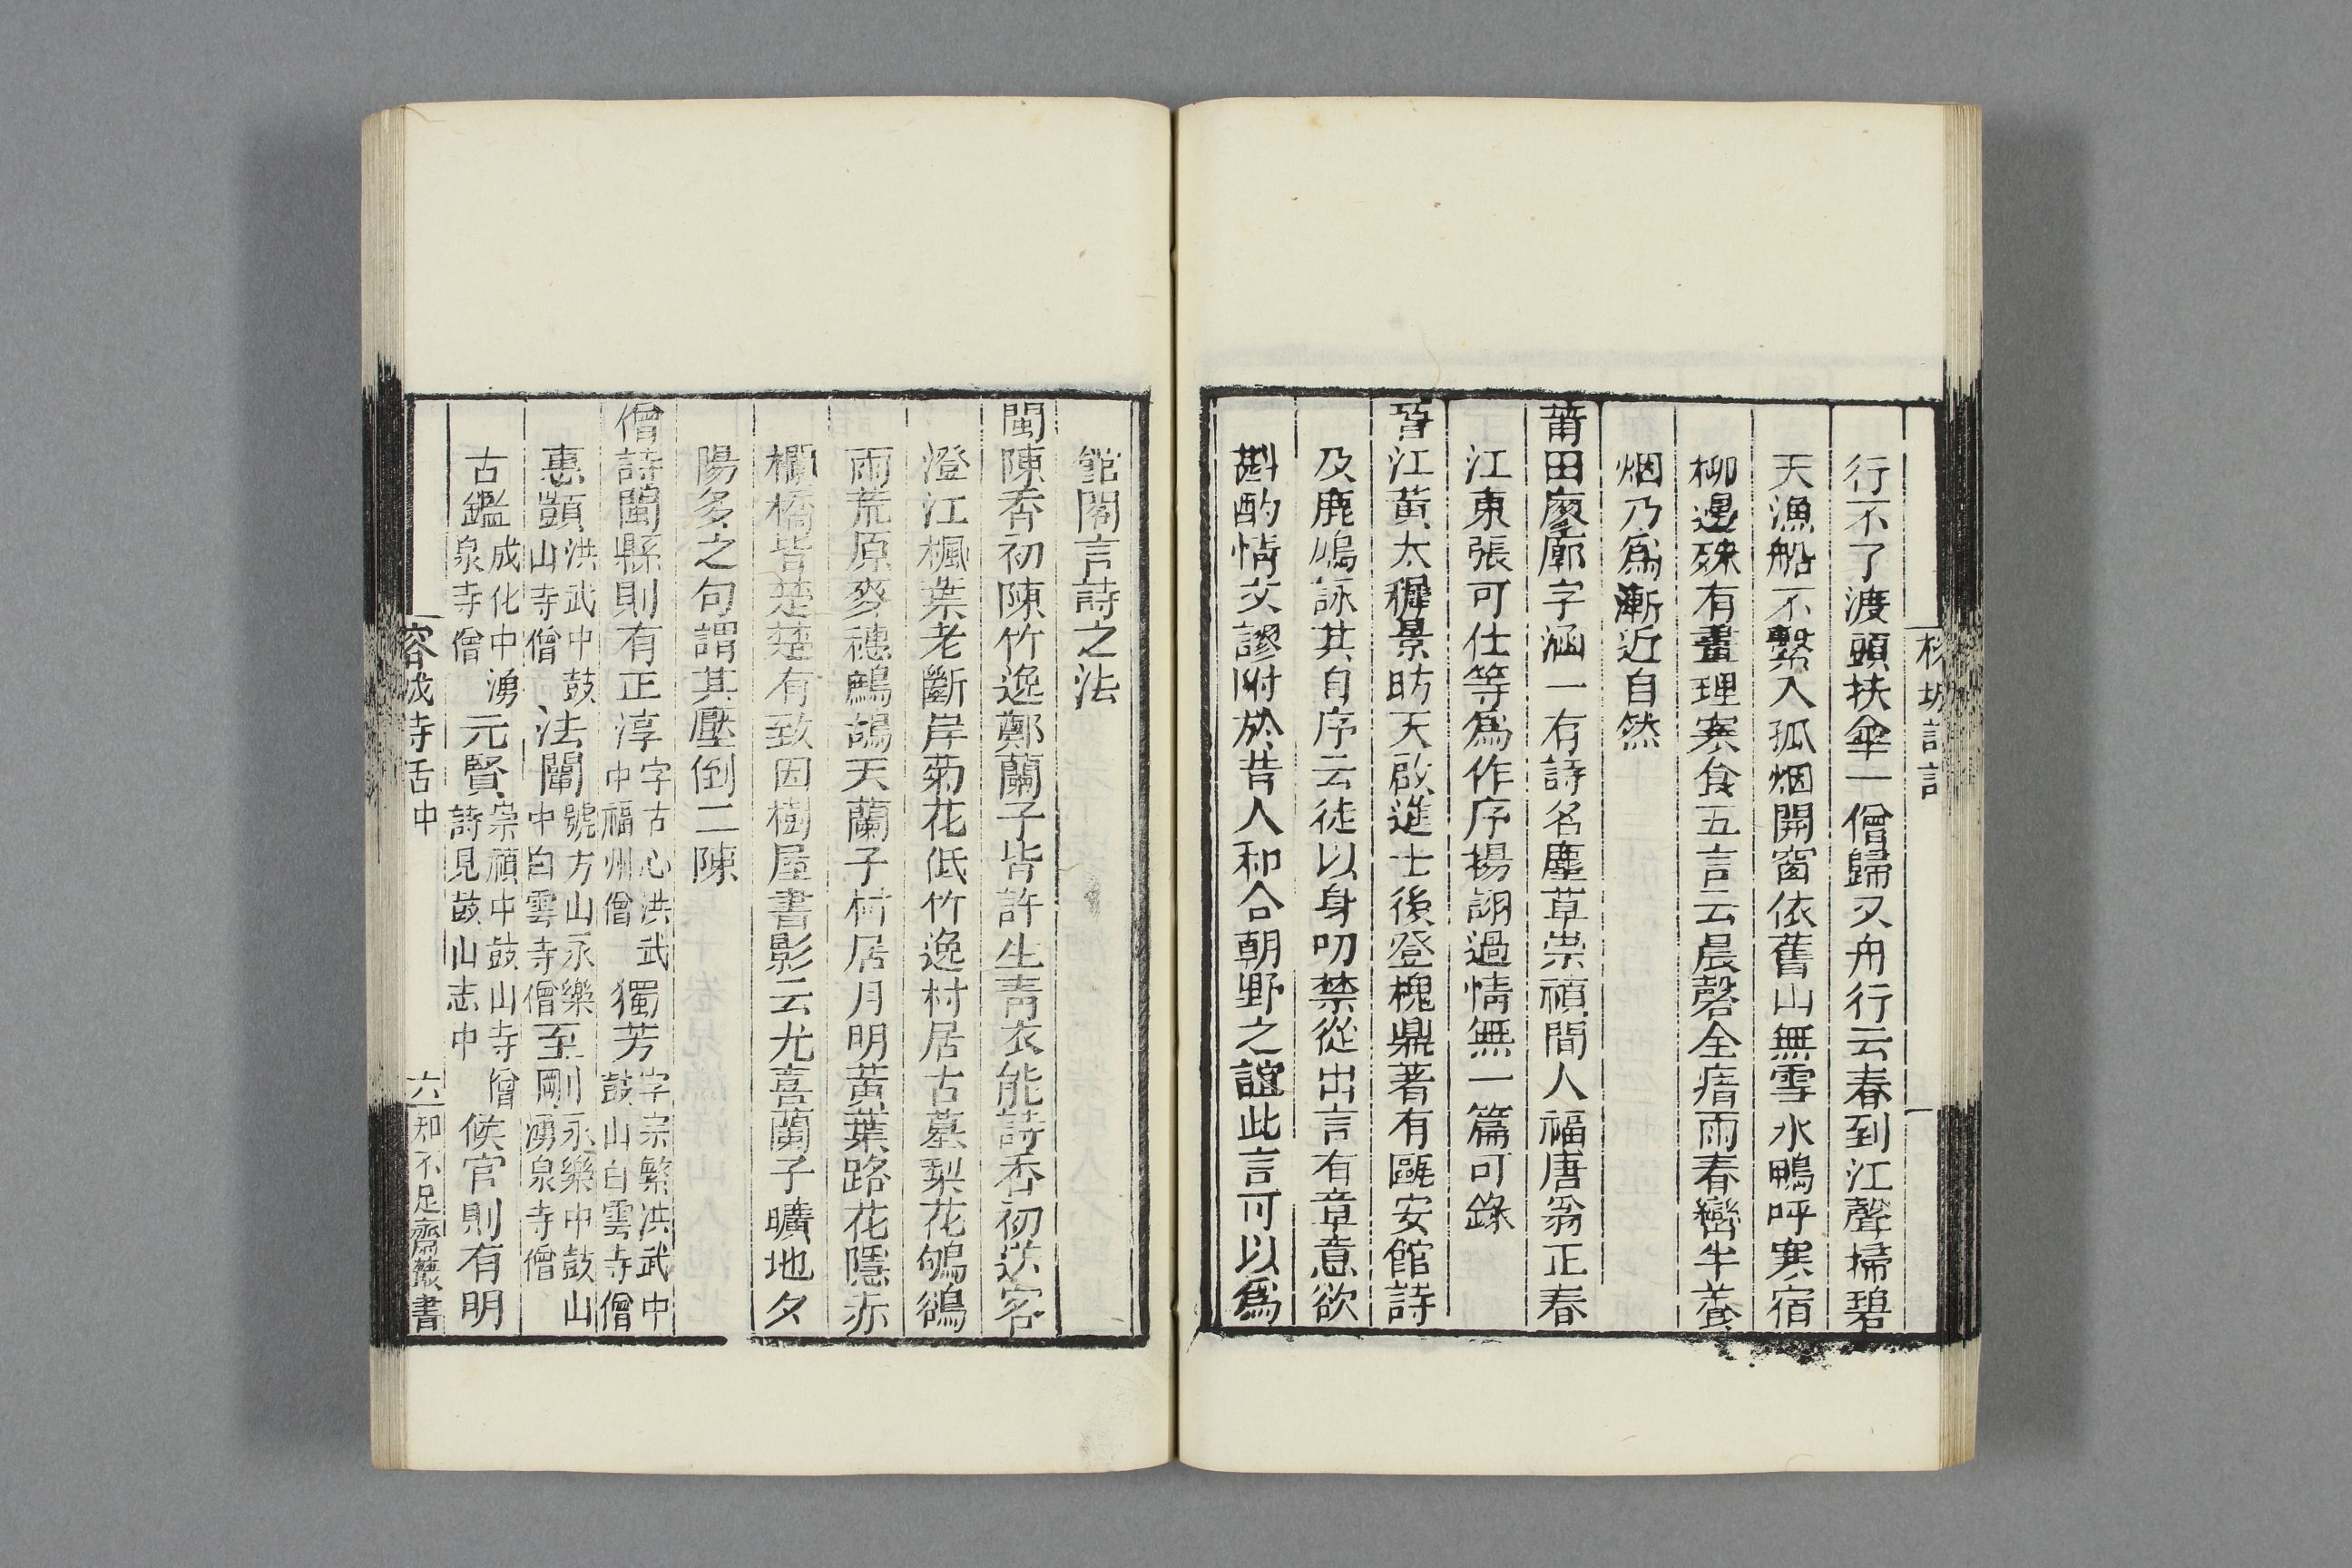 行不了渡頭扶傘一僧歸又舟行云春到江聲掃碧
天漁船不繫入孤烟開窗依舊山無雪水鴨呼寒宿
柳邊殊有畫理寒食五言云晨磬全瘖雨春巒半養
烟乃爲漸近自然
莆田廖廓字涵一有詩名塵草崇禎間人福唐翁正春
江東張可仕等爲作序揚詡過情無一篇可錄
晉江黃太穉景昉天啟進士後登槐鼎著有甌安館詩
及鹿鳩詠其自序云徒以身叨禁從出言有章意欲
斟酌情文謬附於昔人和合朝野之誼此言可以爲
館閣言詩之法
閩陳香初陳竹逸鄭蘭子皆許生青衣能詩香初送客
澄江楓葉老斷岸菊花低竹逸村居古墓梨花鳴鵒
雨荒原麥穗鷓鴣天蘭子村居月明黃葉路花隱赤
欄橋皆楚楚有致因樹屋書影云尤喜蘭子曠地夕
陽多之句謂其壓倒二陳
僧詩閩縣則有正淳字古心洪武中福州僧獨芳字宗繁洪武中鼓山白雲寺僧
惠顗洪武中鼓山寺僧法闡號方山永樂中白雲寺僧至剛永樂中鼓山湧泉寺僧
古鑑成化中湧泉寺僧元賢崇禎中鼓山寺僧詩見鼓山志中候官則有明
六
知不足齋叢書